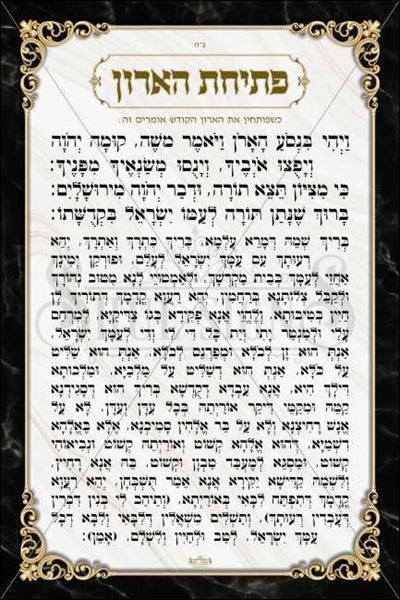 ב"ה
פתיחת הארון
כשפותחין את הארון הקודש אומרים זה:
וַיְהִי בִּנְסֹעַ הָאָרֹן וַיֹּאמֶר מֹשֶׁה, קוּמָה יְהֹוָה
וְיָפֻצוּ אוֹיְבֶיךָ, וְיָנֻסוּ מְשַׂנְאֶיךָ מִפָּנֶיךָ:
כִּי מִצִּיּוֹן תֵּצֵא תוֹרָה, וּדְבַר יְהֹוָה מִירוּשָׁלָיִם:
בָּרוּךְ שֶׁנָּתַן תּוֹרָה לְעַמּוֹ יִשְׂרָאֵל בִּקְדֻשָּׁתוֹ:
בְּרִיךְ שְׁמֵהּ דְּמָרֵא עָלְמָא, בְּרִיךְ כִּתְרָךְ וְאַתְרָךְ, יְהֵא
רְעוּתָךְ עִם עַמָּךְ יִשְׂרָאֵל לְעָלַם, וּפוּרְקַן יְמִינָךְ
אַחֲזֵי לְעַמָּךְ בְּבֵית מִקְדְּשָׁךְ, וּלְאַמְטוֹיֵי לָנָא מִטּוּב נְהוֹרָךְ
וּלְקַבֵּל צְלוֹתָנָא בְּרַחֲמִין, יְהֵא רַעֲוָא קֳדָמָךְ דְּתוֹרִיךְ לָן
חַיִּין בְּטִיבוּתָא, וְלֶהֱוֵי אֲנָא פְקִידָא בְּגוֹ צַדִּיקַיָּא, לְמִרְחַם
עָלַי וּלְמִנְטַר יָתִי וְיָת כָּל דִּי לִי וְדִי לְעַמָּךְ יִשְׂרָאֵל,
אַנְתְּ הוּא זָן לְכֹלָּא וּמְפַרְנֵס לְכֹלָּא, אַנְתְּ הוּא שַׁלִּיט
עַל כֹּלָּא, אַנְתְּ הוּא דְּשַׁלִּיט עַל מַלְכַיָּא, וּמַלְכוּתָא
דִּילָךְ הִיא, אֲנָא עַבְדָּא דְקֻדְשָׁא בְּרִיךְ הוּא דְּסָגִידְנָא
קַמֵּהּ וּמִקַּמֵּי דִּיקַר אוֹרַיְתֵהּ בְּכָל עִדָּן וְעִדָּן, לָא עַל
אֱנָשׁ רָחִיצְנָא וְלָא עַל בַּר אֱלָהִין סָמִיכְנָא, אֶלָּא בֶּאֱלָהָא
דִשְׁמַיָּא, דְּהוּא אֱלָהָא קְשׁוֹט וְאוֹרַיְתֵהּ קְשׁוֹט וּנְבִיאוֹהִי
קְשׁוֹט, וּמַסְגֵּא לְמֶעְבַּד טַבְוָן וּקְשׁוֹט, בֵּהּ אֲנָא רָחִיץ,
וְלִשְׁמֵהּ קַדִּישָׁא יַקִּירָא אֲנָא אֵמַר תֻּשְׁבְּחָן, יְהֵא רַעֲוָא
קֳדָמָךְ דְּתִפְתַּח לִבָּאִי בְּאוֹרַיְתָא, (וְתֵיהַב לִי בְּנִין דִּכְרִין
דְּעָבְדִין רְעוּתָךְ), וְתַשְׁלִים מִשְׁאֲלִין דְּלִבָּאִי וְלִבָּא דְכָל
עַמָּךְ יִשְׂרָאֵל, לְטַב וּלְחַיִּין וְלִשְׁלָם, (אָמֵן):